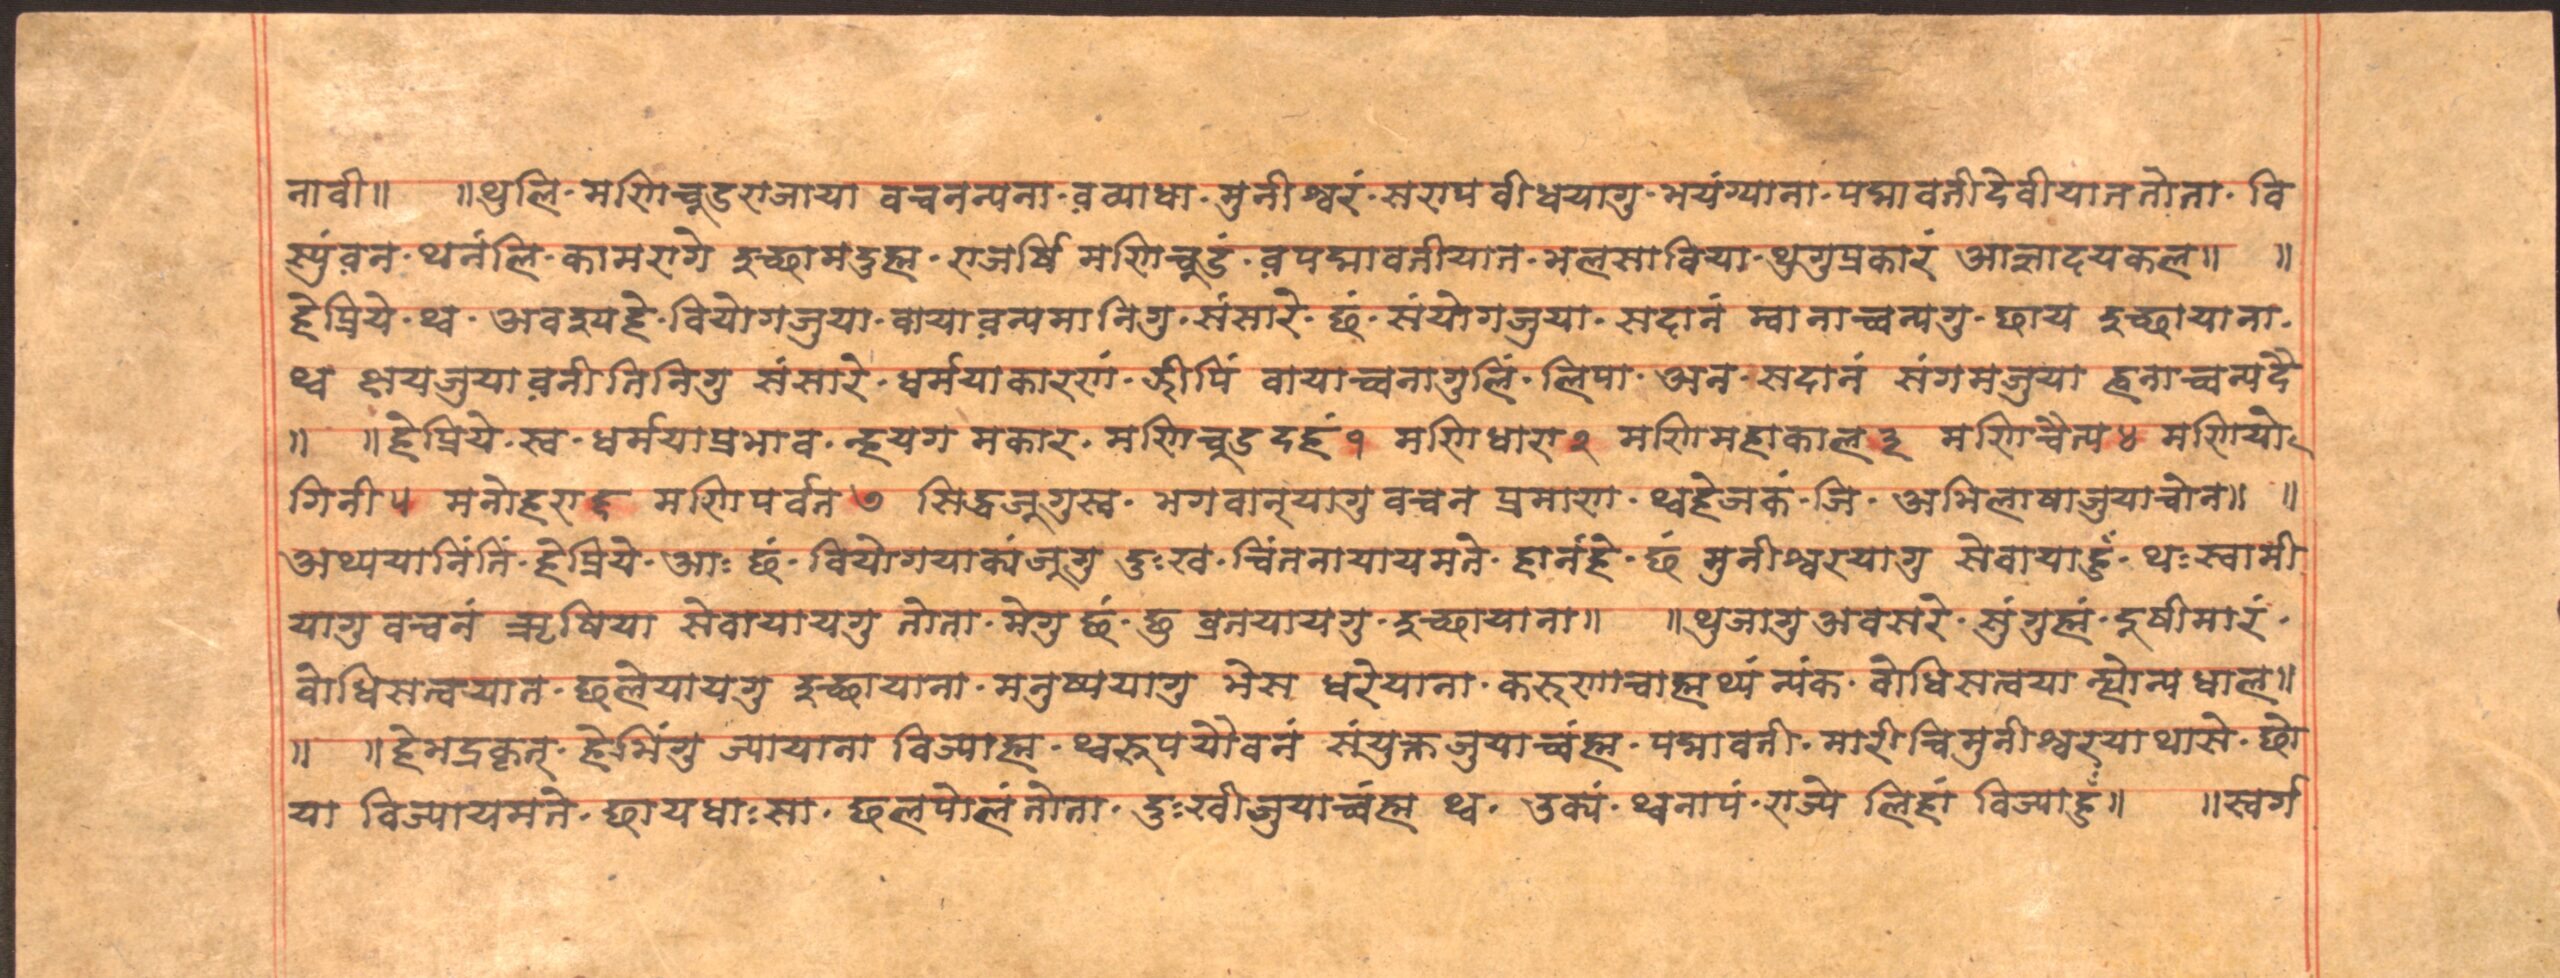 नावी॥ ॥थुलि· मणिचुडराजाया वचनन्यना· व़व्याधा· मुनीश्वरं· सराप वीधयागु· भयंग्याना· पद्मावतीदेवीयात तोता· वि
स्युंव़न· थनंलि· कामरागे इच्छामदुह्म· राजर्षि मणिचुडं· व़पद्मावतीयात· भलसाविया· थुगुप्रकारं आज्ञादयकल॥ ॥
हेप्रिये· थ्व· अवश्यहे· वियोगजुया· वायाव़न्यमानिगु· संसारे· छं· संयोगजुया· सदानं म्वानाच्वन्यगु· छाय इच्छायाना·
थ्व क्षयजुयाव़नीतिनिगु संसारे· धर्मयाकारणं· झीपिं वायाच्वनागुलिं· लिपा· अन· सदानं संगमजुया ह्वनाच्वन्यदै
॥ ॥हेप्रिये· स्व· धर्मयाप्रभाव· न्हयग मकार· मणिचुड दहं१ मणिधारा२ मणिमहाकाल३ मणिचैत्य४ मणियो
गिनी५ मनोहरा६ मणिपर्वत७ सिद्धजुगुस्व· भगवान्‌यागु वचन प्रमाण· थ्वहेजकं· जि· अभिलाषाजुयाचोन॥ ॥
अथ्ययानिंतिं· हेप्रिये· आः छं· वियोगयाक्यंजुगु दुःख· चिंतनायायमते· हानंहे· छं मुनीश्वरयागु सेवायाहुँ· थःस्वामी
यागु वचनं ऋषिया सेवायायगु तोता· मेगु छं· छु व्रतयायगु· इच्छायाना॥ ॥थुजागु अवसरे· सुंगुह्मं· दुषीमारं·
वोधिसत्वयात· छलेयायगु इच्छायाना· मनुष्ययागु भेस धरेयाना· करुणाचाह्मथ्यं न्यंक· वोधिसत्वया न्ह्योन्य धाल॥
॥ ॥हेभद्रकृत्· हेभिंगु ज्यायाना विज्याह्म· थ्वरूपयौवनं संयुक्तजुयाच्वंह्म· पद्मावती· मारीचिमुनीश्वरयाथासे· छो
या विज्यायमते· छायधाःसा· छलपोलंतोता· दुःखीजुयाच्वंह्म थ्व· उक्यं· थ्वनापं· राज्ये लिहां विज्याहुँ॥ ॥स्वर्ग